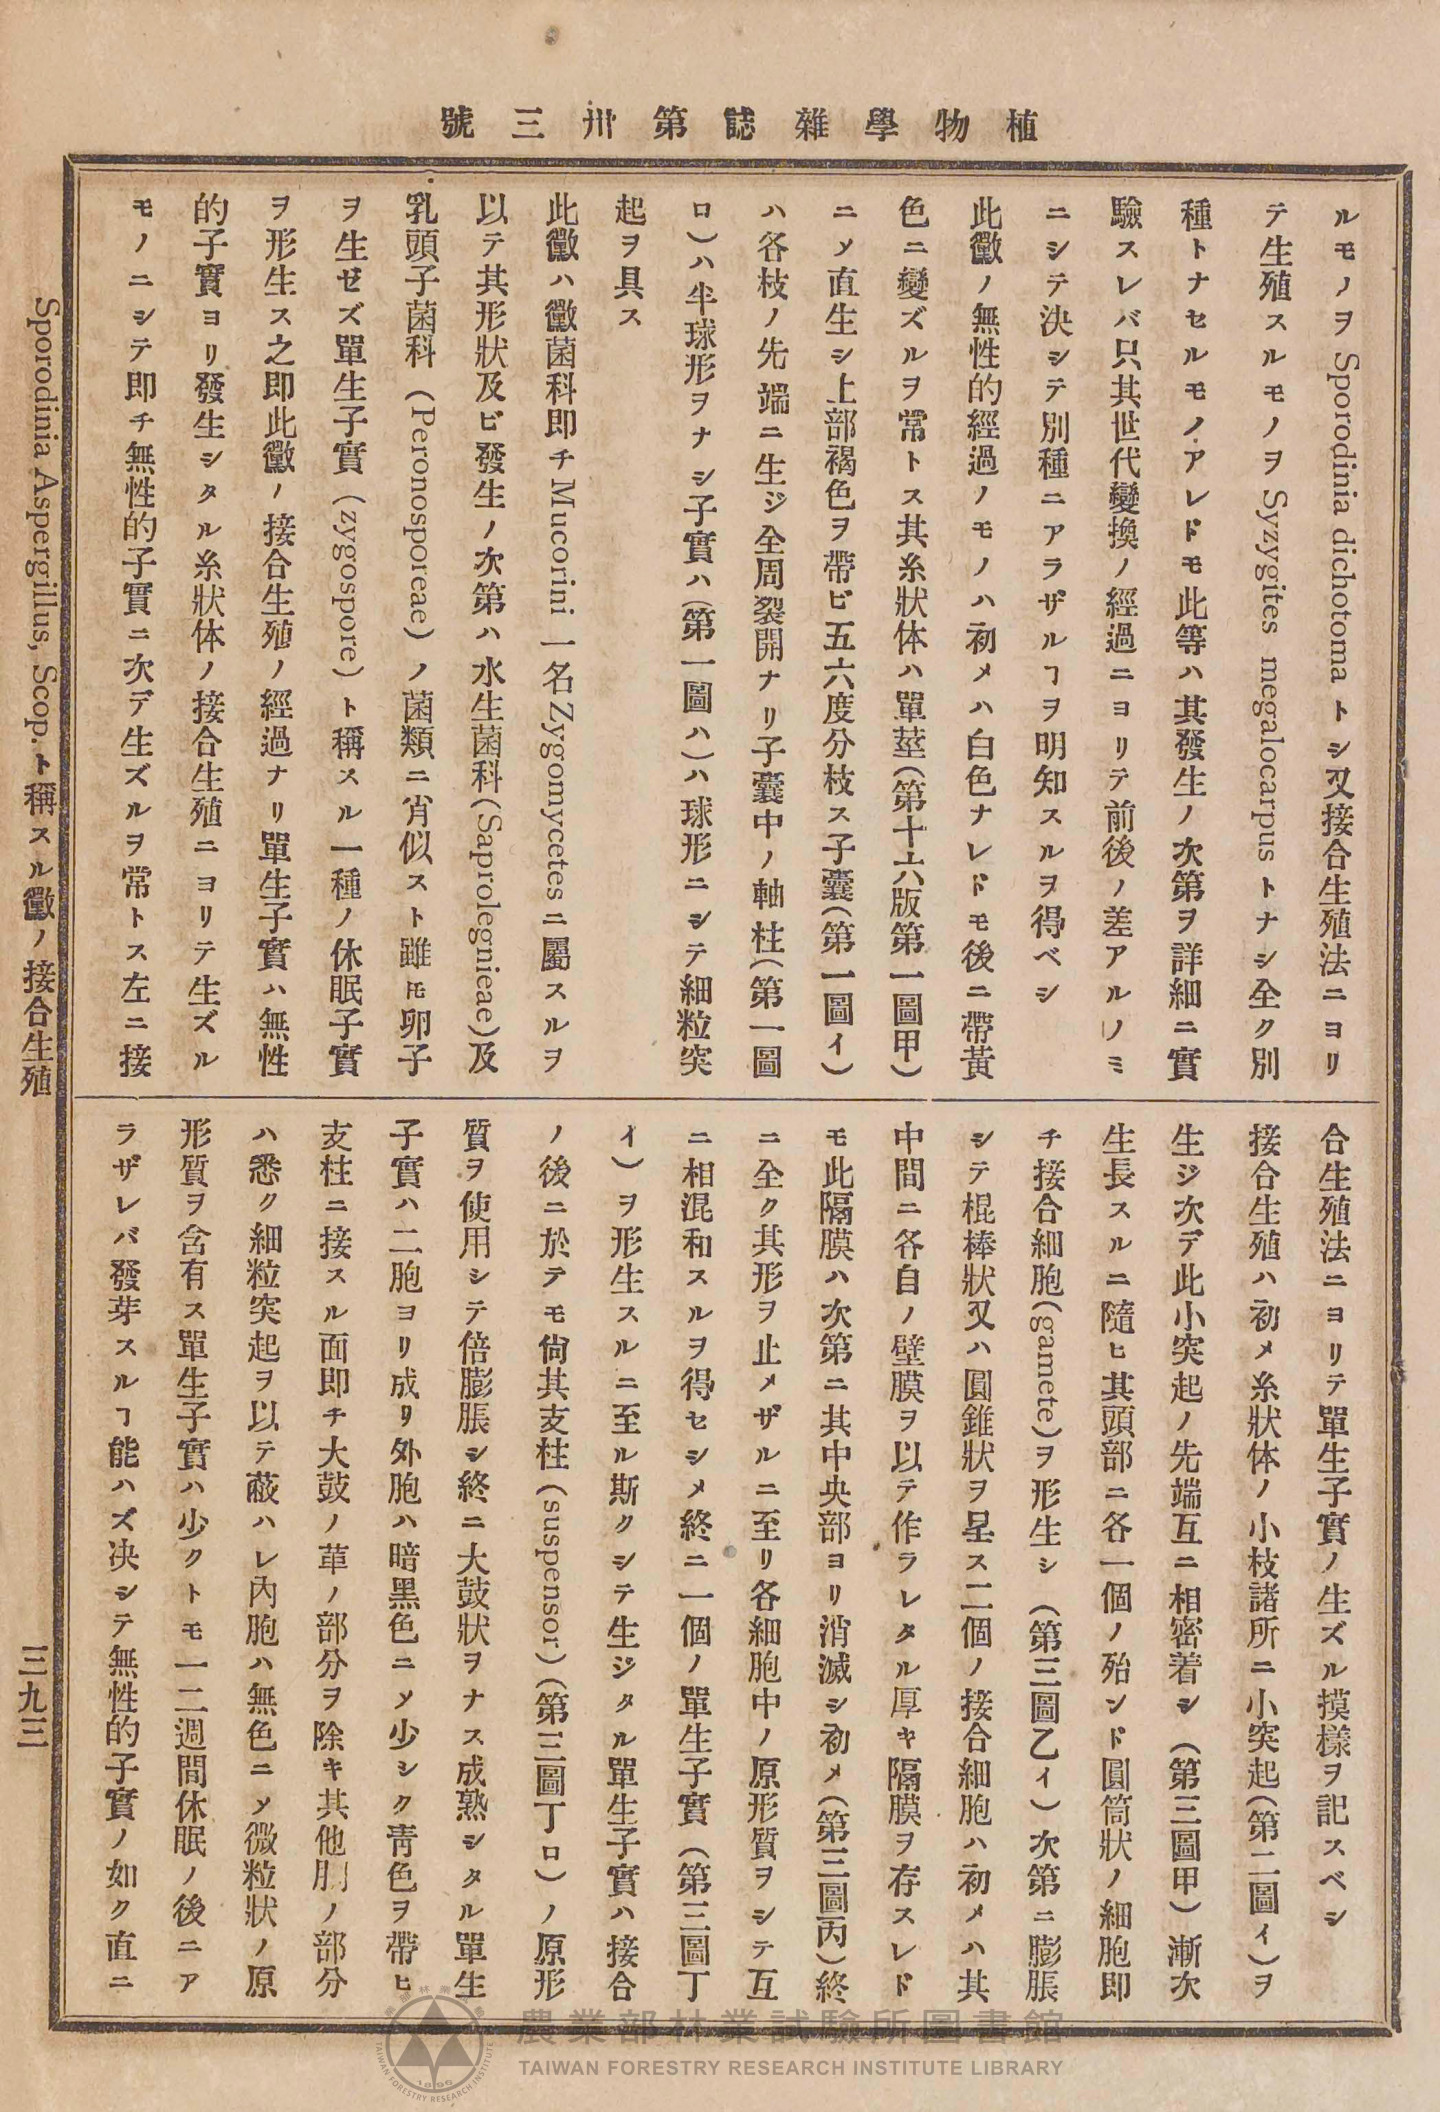 植物學雜誌第卅三號
ルモノヲ Sporodinia dichotoma トシ又接合生殖法ニヨリ
テ生殖スルモノヲ Syzygites megalocarpus トナシ全ク別
種トナセルモノアレドモ此等ハ其發生ノ次第ヲ詳細ニ實
驗スレバ只其世代變換ノ經過ニヨリテ前後ノ差アルノミ
ニシテ決シテ別種ニアラザルヿヲ明知スルヲ得ベシ
此黴ノ無性的經過ノモノハ初メハ白色ナレドモ後ニ帶黃
色ニ變ズルヲ常トス其糸狀体ハ單莖(第十六版第一圖甲)
ニメ直生シ上部褐色ヲ帶ビ五六度分枝ス子囊(第一圖イ)
ハ各枝ノ先端ニ生ジ全周裂開ナリ子囊中ノ軸柱(第一圖
ロ)ハ半球形ヲナシ子實ハ(第一圖ハ)ハ球形ニシテ細粒突
起ヲ具ス
此黴ハ黴菌科即チ Mucorini 一名 Zygomycetes ニ屬スルヲ
以テ其形狀及ビ發生ノ次第ハ水生菌科(Saprolegnieae)及
乳頭子菌科(Peronosporeae)ノ菌類ニ肖似スト雖𪜈卵子
ヲ生ゼズ單生子實(zygospore)ト稱スル一種ノ休眠子實
ヲ形生ス之即此黴ノ接合生殖ノ經過ナリ單生子實ハ無性
的子實ヨリ發生シタル糸狀体ノ接合生殖ニヨリテ生ズル
モノニシテ即チ無性的子實ニ次デ生ズルヲ常トス左ニ接
合生殖法ニヨリテ單生子實ノ生ズル摸樣ヲ記スベシ
接合生殖ハ初メ糸狀体ノ小枝諸所ニ小突起(第二圖イ)ヲ
生ジ次デ此小突起ノ先端互ニ相密着シ(第三圖甲)漸次
生長スルニ隨ヒ其頭部ニ各一個ノ殆ンド圓筒狀ノ細胞即
チ接合細胞(gamete)ヲ形生シ(第三圖乙イ)次第ニ膨脹
シテ棍棒狀又ハ圓錐狀ヲ呈ス二個ノ接合細胞ハ初メハ其
中間ニ各自ノ壁膜ヲ以テ作ラレタル厚キ隔膜ヲ存スレド
モ此隔膜ハ次第ニ其中央部ヨリ消滅シ初メ(第三圖丙)終
ニ全ク其形ヲ止メザルニ至リ各細胞中ノ原形質ヲシテ互
ニ相混和スルヲ得セシメ終ニ一個ノ單生子實(第三圖丁
イ)ヲ形生スルニ至ル斯クシテ生ジタル單生子實ハ接合
ノ後ニ於テモ尙其支柱(suspensor)(第三圖丁ロ)ノ原形
質ヲ使用シテ倍膨脹シ終ニ大鼓狀ヲナス成熟シタル單生
子實ハ二胞ヨリ成リ外胞ハ暗黑色ニメ少シク靑色ヲ帶ヒ
支柱ニ接スル面即チ大鼓ノ革ノ部分ヲ除キ其他ノ部分
ハ悉ク細粒突起ヲ以テ蔽ハレ內胞ハ無色ニメ微粒狀ノ原
形質ヲ含有ス單生子實ハ少クトモ一二週間休眠ノ後ニア
ラザレバ發芽スルヿ能ハズ決シテ無性的子實ノ如ク直ニ
Sporodinia Aspergillus, Scop. ト稱スル黴ノ接合生殖
三九三
農業部林業試驗所圖書館
TAIWAN FORESTRY RESEARCH INSTITUTE LIBRARY